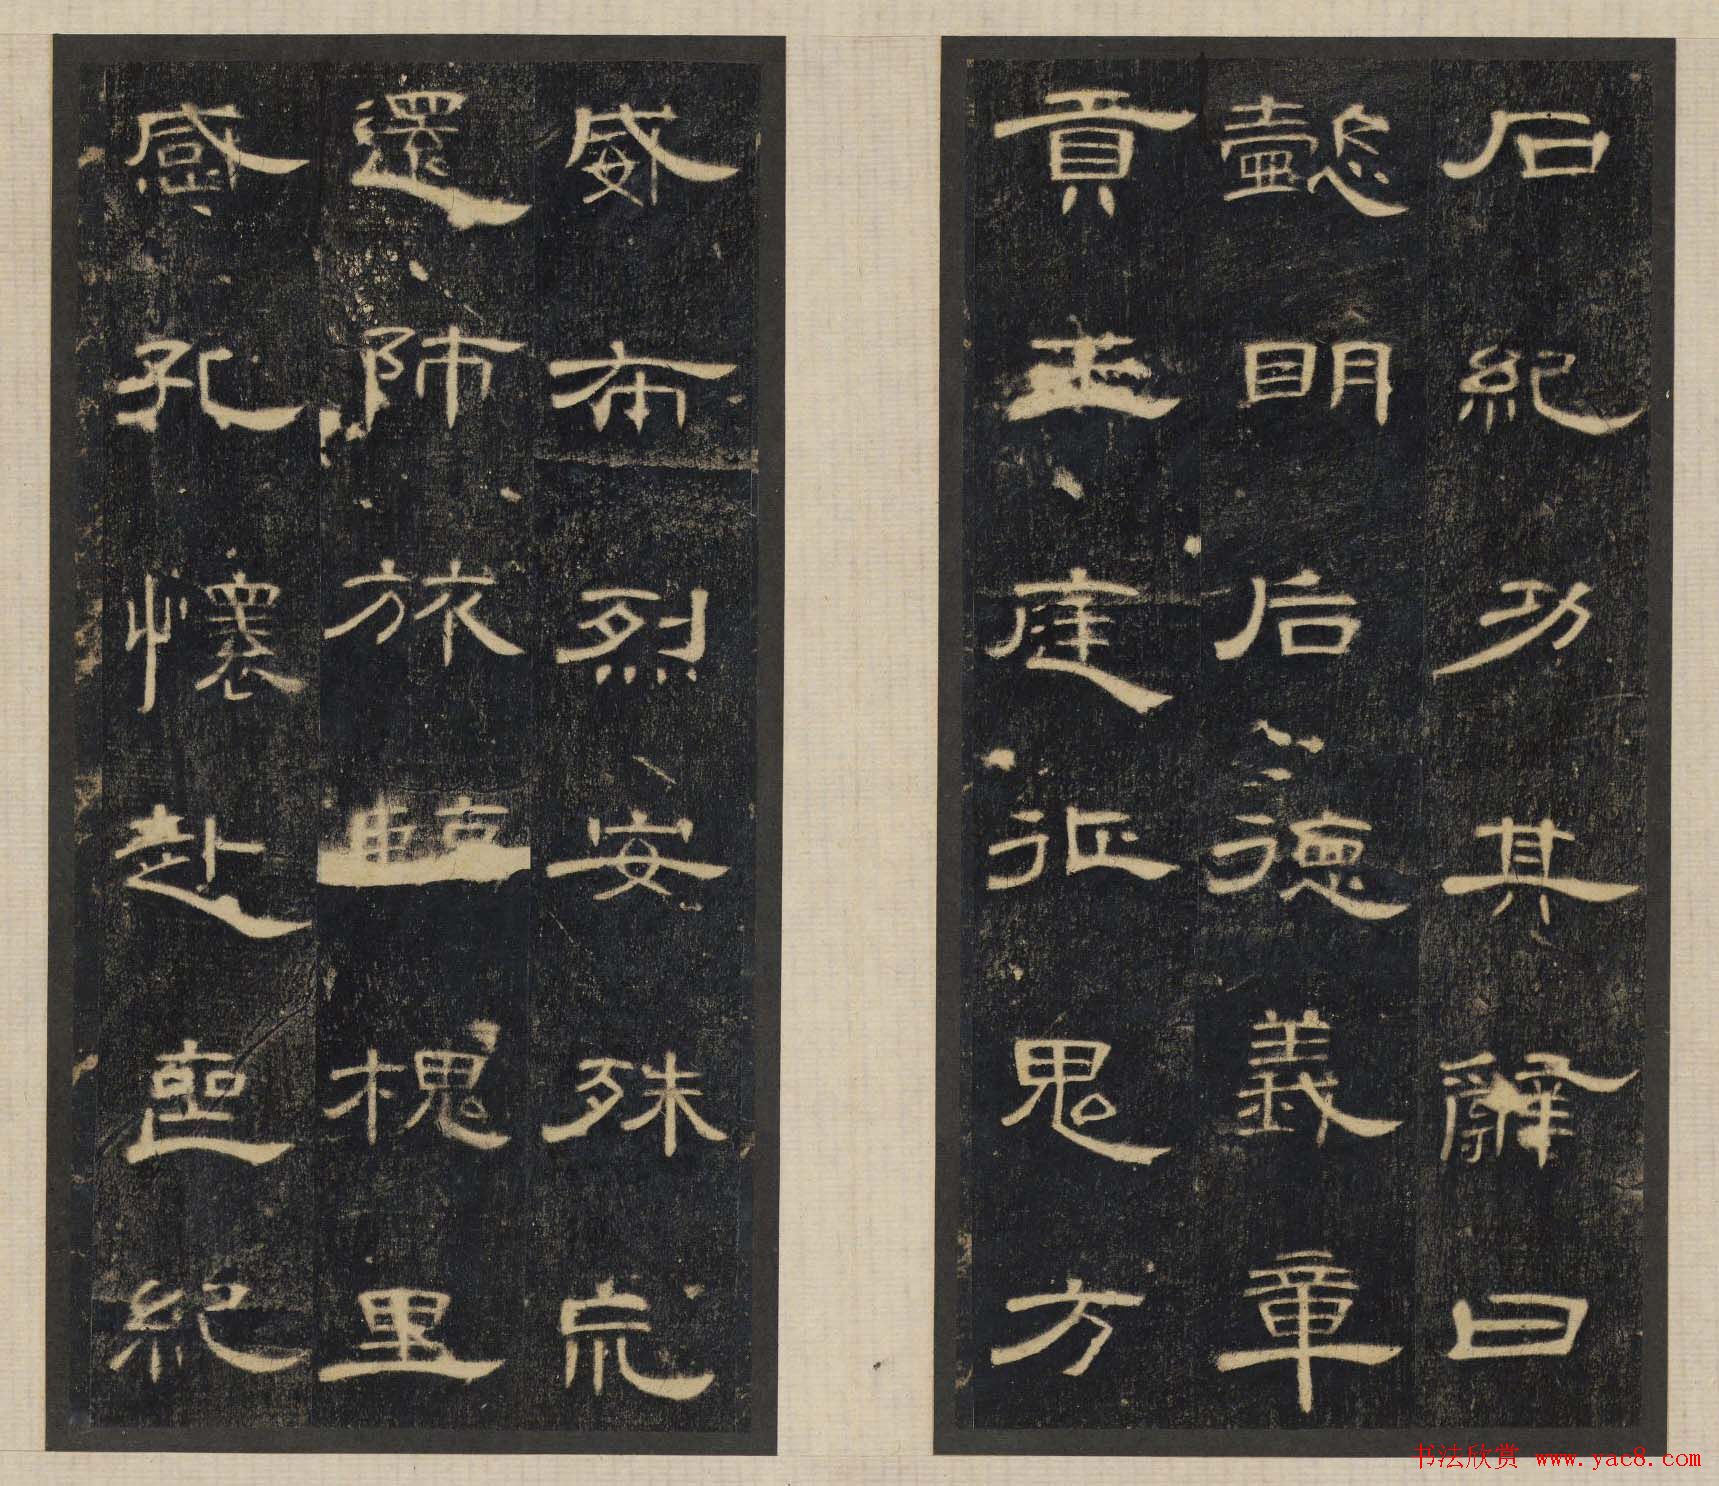 石紀功其辭曰
懿明后德義章
貢王庭征鬼方
威布烈安殊巟
還師旅臨槐里
感孔懷赴喪紀
书法欣赏 www.yac8.com